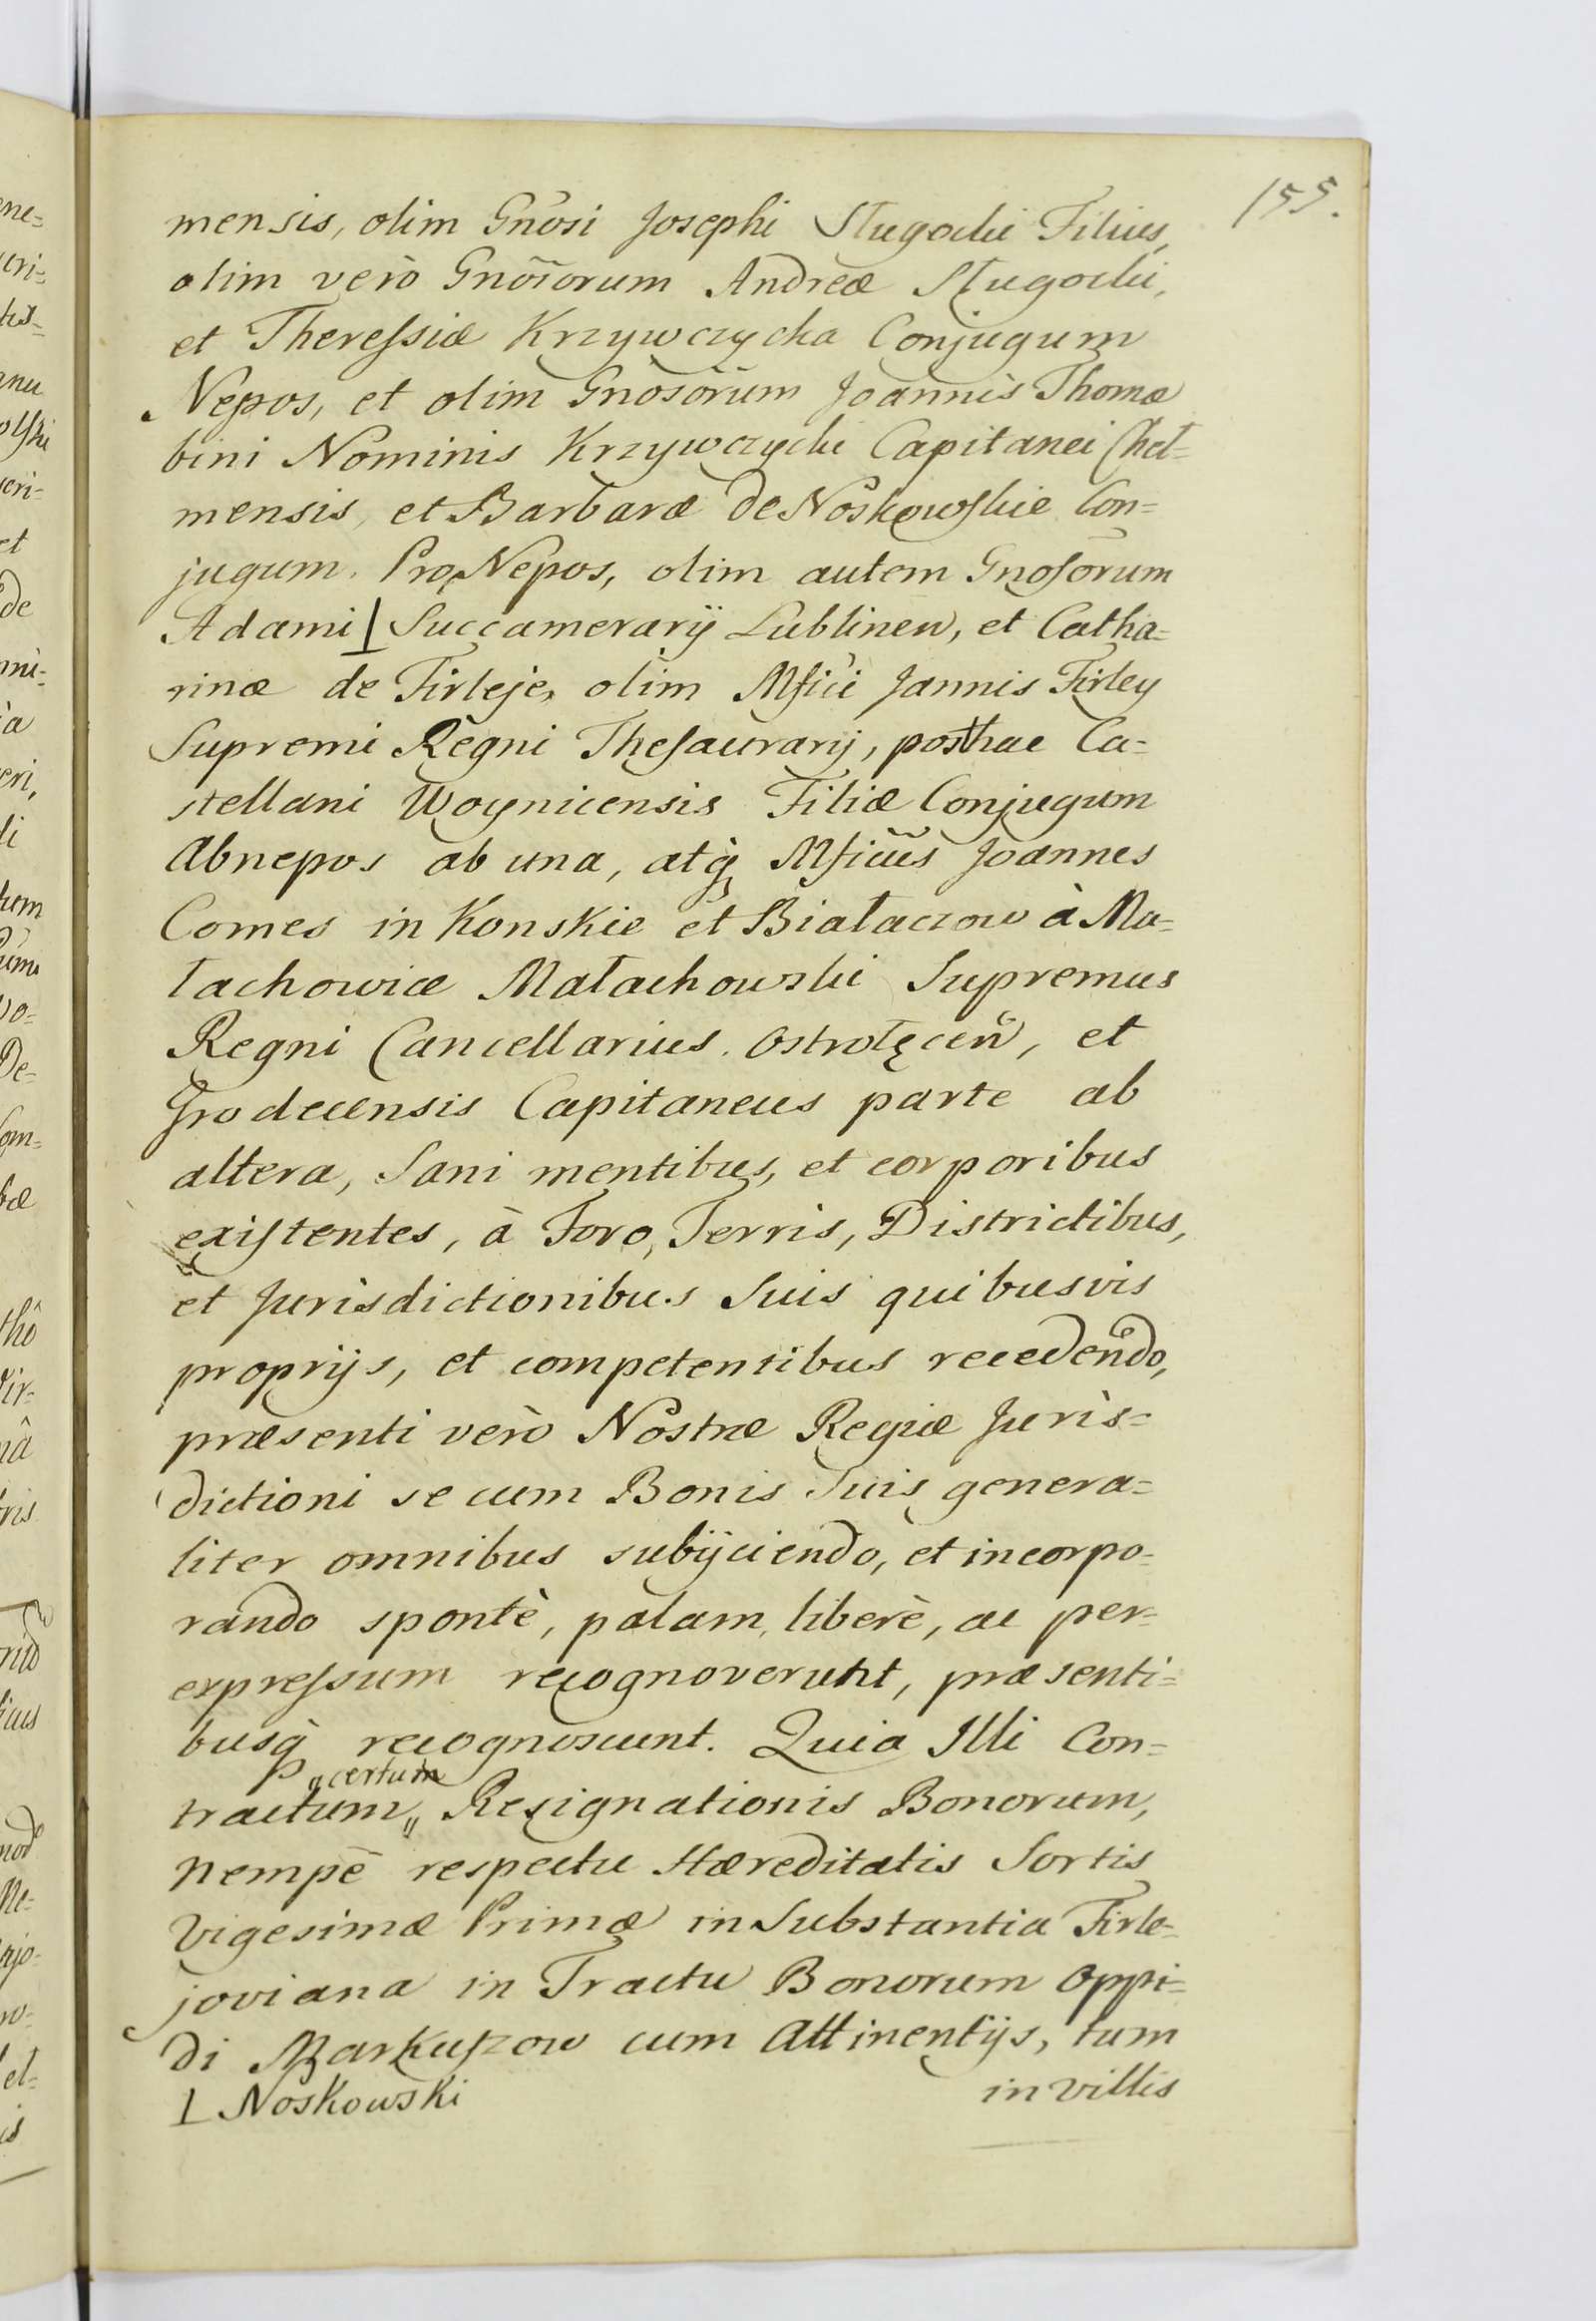 155.
mensis, olim Gnõsi Josephi Sługocki Filius,
olim verò Gnõsorum Andreæ Sługocki,
et Theressiæ Krzywczycka Conjugum
Nepos, et olim Gnosõrum Joannis Thomæ
bini Nominis Krzywczycki Capitanei Cheł=
mensis, et Barbaræ de Noskowskie Con=
jugum. ProNepos, olim autem Gnosõrum
Adami ⊥ Succamerarij Lublinen, et Catha=
rinæ de Firleje, olim Mfici Jannis Firley
Supremi Regni Thesaurarij, posthac Ca=
stellani Woynicensis Filiæ Conjugum
Abnepos ab una, atq Mficus Joannes
Comes in Konskie et Białaczow à Ma=
łachowice Małachowski Supremus
Regni Cancellarius. Ostrołęceñ, et
Grodecensis Capitaneus parte ab
altera, Sani mentibus, et corporibus
existentes, à Foro, Terris, Districtibus,
et Jurisdictionibus Suis quibusvis
proprijs, et competentibus recedendo,
præsenti verò Nostræ Regiæ Juris=
dictioni se cum Bonis Suis genera=
liter omnibus subijciendo, et incorpo=
rando spontè, palam, liberè, ac per=
expressum recognoverunt, præsenti=
busq recognoscunt. Quia Illi Con=
„certum
tractum„ Resignationis Bonorum,
nempè respectu Hæreditatis Sortis
Vigesimæ Primæ in Substantia Firle=
joviana in Tractu Bonorum Oppi=
di Markuszow cum Attinentijs, tum
⊥ Noskowski
in villis